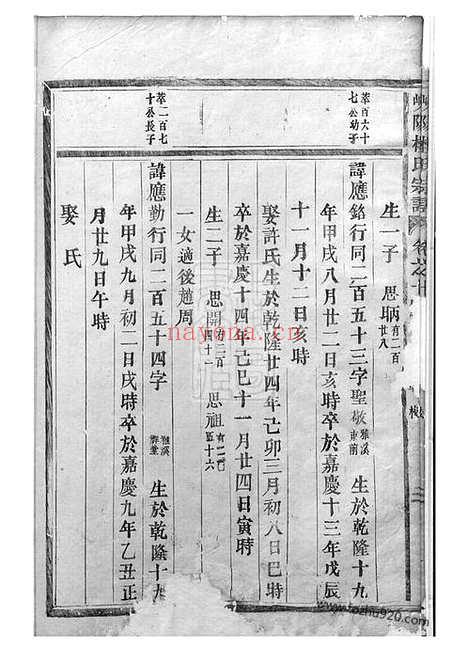 生一子 思聃 有二百廿八
萃百六十七公幼子
諱應銘行同二百五十三字聖敬 雅溪 生於乾隆十九
年甲戌八月廿二日亥時卒於嘉慶十三年戊辰
十一月十二日亥時
娶許氏生於乾隆廿四年己卯三月初八日巳時
卒於嘉慶十四年己巳十一月廿四日寅時
生二子 思開 思祖
一女適後趙周
萃二百七十公長子
諱應勤行同二百五十四字 雅溪 生於乾隆十九
年甲戌九月初二日戌時卒於嘉慶九年乙丑正
月廿九日午時
娶氏
nayona.cn
www.fozhu920.com